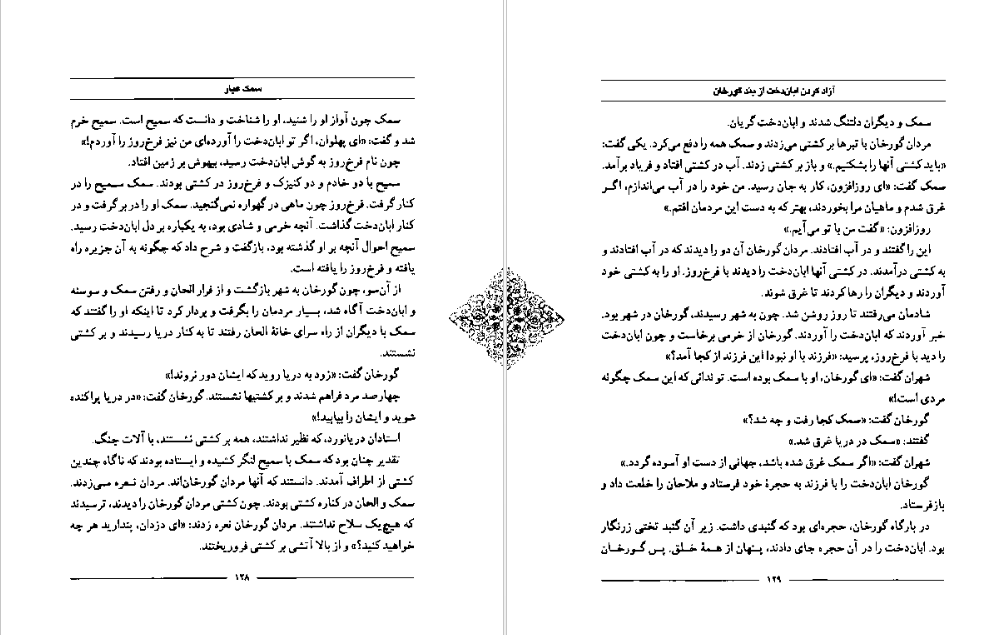 سمک عیار
سمک چون آواز او را شنید، او را شناخت و دانست که سمیح است. سمیح خرم
شد و گفت: «ای پهلوان، اگر تو ابان‌دخت را آورده‌ای من نیز فرخ‌روز را آوردم!»
چون نام فرخ‌روز به گوش ابان‌دخت رسید، بیهوش بر زمین افتاد.
سمیح با دو خادم و دو کنیزک و فرخ‌روز در کشتی بودند. سمک سمیح را در
کنار گرفت. فرخ‌روز چون ماهی در گهواره نمی‌گنجید. سمک او را در بر گرفت و در
کنار ابان‌دخت گذاشت. آنچه خرمی و شادی بود، به یکباره بر دل ابان‌دخت رسید.
سمیح احوال آنچه بر او گذشته بود، بازگفت و شرح داد که چگونه به آن جزیره راه
یافته و فرخ‌روز را یافته است.
از آن‌سو، چون گورخان به شهر بازگشت و از فرار الحان و رفتن سمک و سوسنه
و ابان‌دخت آگاه شد، بسیار مردمان را بگرفت و بردار کرد تا اینکه او را گفتند که
سمک با دیگران از راه سرای خانهٔ الحان رفتند تا به کنار دریا رسیدند و بر کشتی
نشستند.
گورخان گفت: «زود به دریا روید که ایشان دور نروند!»
چهارصد مرد فراهم شدند و بر کشتیها نشستند. گورخان گفت: «در دریا پراکنده
شوید و ایشان را بیابید!»
استادان دریانورد، که نظیر نداشتند، همه بر کشتی نشستند، با آلات جنگ.
تقدیر چنان بود که سمک با سمیح لنگر کشیده و ایستاده بودند که ناگاه چندین
کشتی از اطراف آمدند. دانستند که آنها مردان گورخان‌اند. مردان نعره می‌زدند.
سمک و الحان در کناره کشتی بودند. چون کشتی مردان گورخان را دیدند، ترسیدند
که هیچ‌یک سلاح نداشتند. مردان گورخان نعره زدند: «ای دزدان، پندارید هر چه
خواهید کنید؟» و از بالا آتشی بر کشتی فروریختند.
۱۲۸
آزاد کردن ابان‌دخت از بند گورخان
سمک و دیگران دلتنگ شدند و ابان‌دخت گریان.
مردان گورخان با تبرها بر کشتی می‌زدند و سمک همه را دفع می‌کرد. یکی گفت:
«باید کشتی آنها را بشکنیم.» و باز بر کشتی زدند. آب در کشتی افتاد و فریاد برآمد.
سمک گفت: «ای روزافزون، کار به جان رسید. من خود را در آب می‌اندازم، اگر
غرق شدم و ماهیان مرا بخوردند، بهتر که به دست این مردمان افتم.»
روزافزون: «گفت من با تو می‌آیم.»
این را گفتند و در آب افتادند. مردان گورخان آن دو را دیدند که در آب افتادند و
به کشتی درآمدند. در کشتی آنها ابان‌دخت را دیدند با فرخ‌روز. او را به کشتی خود
آوردند و دیگران را رها کردند تا غرق شوند.
شادمان می‌رفتند تا روز روشن شد. چون به شهر رسیدند، گورخان در شهر بود.
خبر آوردند که ابان‌دخت را آوردند. گورخان از خرمی برخاست و چون ابان‌دخت
را دید با فرخ‌روز، پرسید: «فرزند با او نبود! این فرزند از کجا آمد؟»
شهران گفت: «ای گورخان، او با سمک بوده است. تو ندانی که این سمک چگونه
مردی است!»
گورخان گفت: «سمک کجا رفت و چه شد؟»
گفتند: «سمک در دریا غرق شد.»
شهران گفت: «اگر سمک غرق شده باشد، جهانی از دست او آسوده گردد.»
گورخان ابان‌دخت را با فرزند به حجرهٔ خود فرستاد و ملاحان را خلعت داد و
بازفرستاد.
در بارگاه گورخان، حجره‌ای بود که گنبدی داشت. زیر آن گنبد تختی زرنگار
بود. ابان‌دخت را در آن حجره جای دادند، پنهان از همهٔ خلق. پس گورخان
۱۲۹